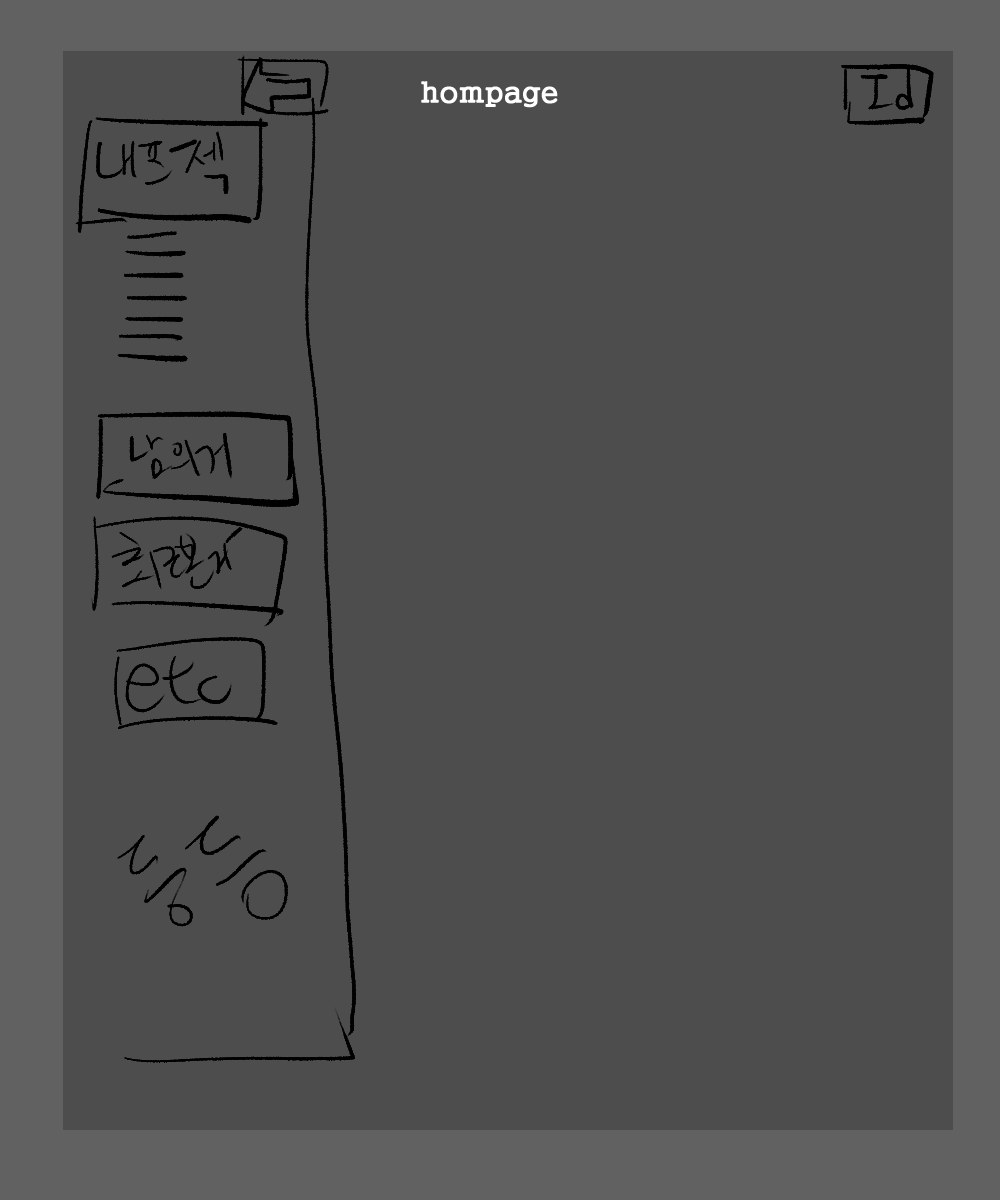 hompage
Id
내프젝
남의거
최근본거
etc